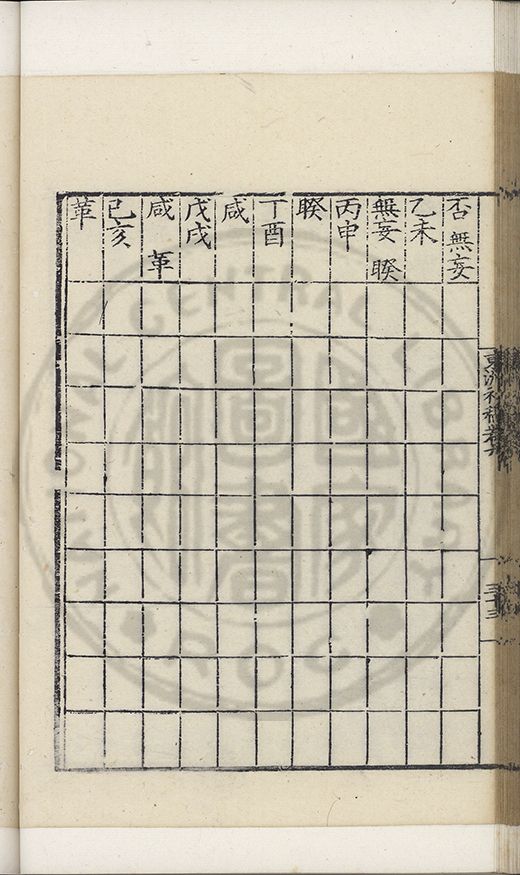 否 無妄
乙未
無妄 睽
丙申
睽
丁酉
咸
戊戌
咸 革
己亥
革